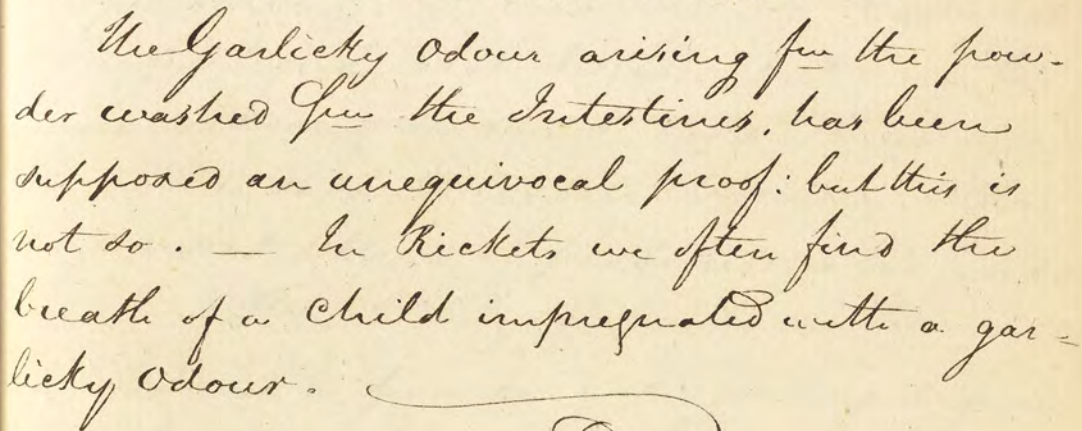 The Garlicky Odour arising fm the pow-
der washed fm the Intestines, has been
supposed an unequivocal proof: but this is
not so. — In Rickets we often find the
breath of a Child impregnated with a gar=
licky Odour.